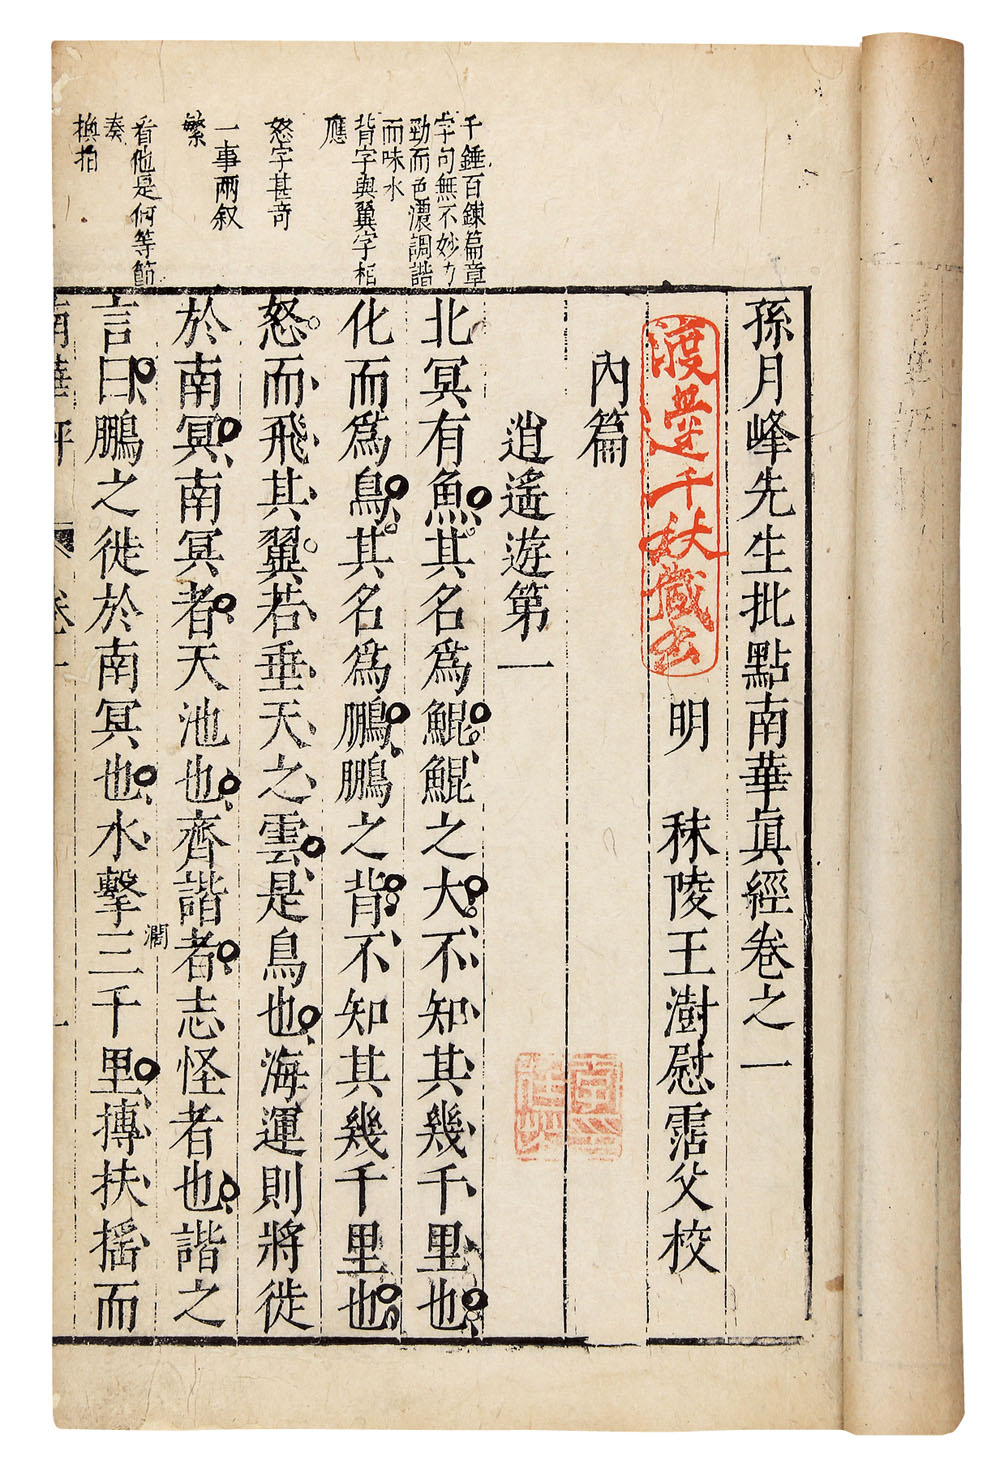 孫月峰先生批點南華眞經卷之一
明 秣陵王澍慰霑父校
內篇
逍遙遊第一
北冥有魚其名爲鯤鯤之大不知其幾千里也
化而爲鳥其名爲鵬鵬之背不知其幾千里也
怒而飛其翼若垂天之雲是鳥也海運則將徙
於南冥南冥者天池也齊諧者志怪者也諧之
言曰鵬之徙於南冥也水擊三千里摶扶搖而
南華評 卷一 一
千錘百鍊篇章
字句無不妙力
勁而色濃調諧
而味永
背字與翼字相
應
怒字甚奇
一事兩叙
繁
看他是何等節
奏
換拍
千秋藏書